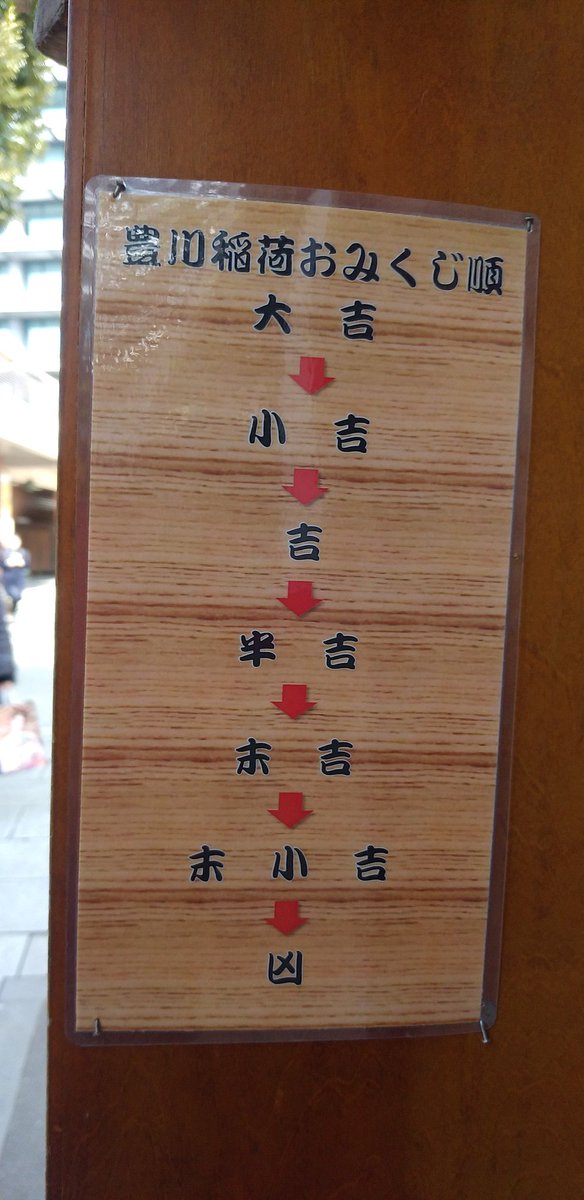 豊川稲荷おみくじ順
大吉
小吉
吉
半吉
末吉
末小吉
凶